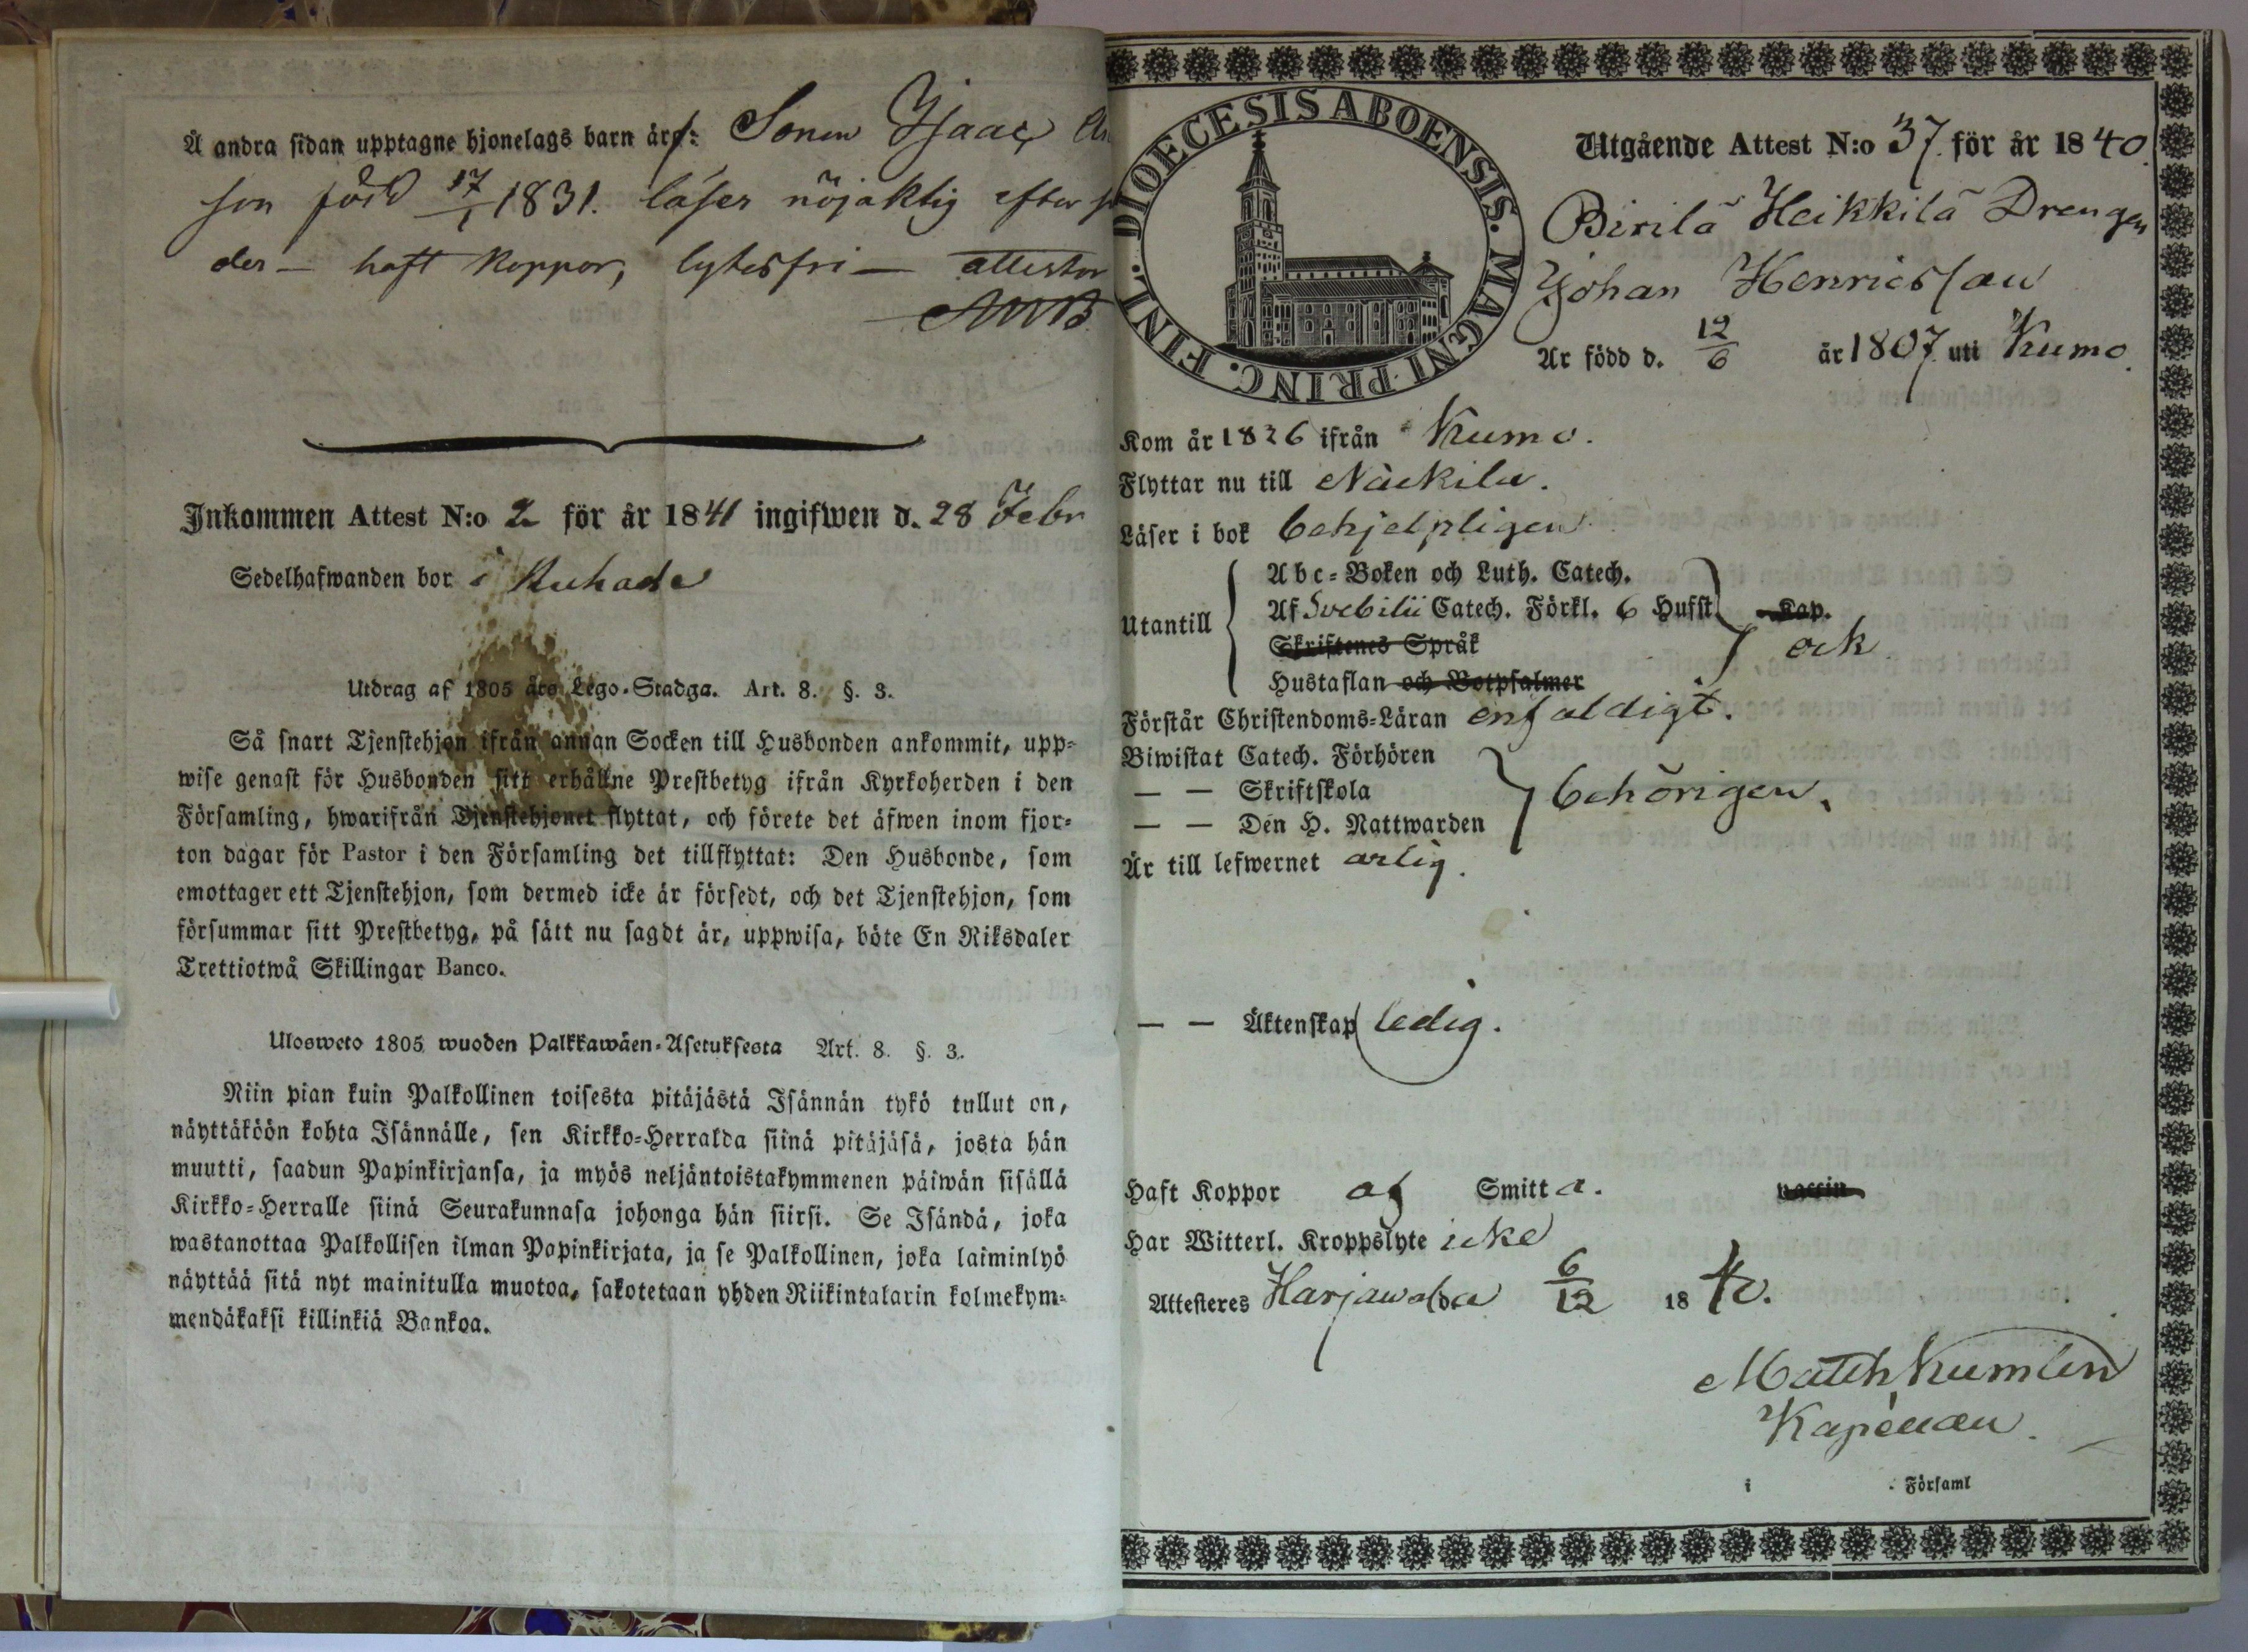 Å andra sidan upptagne hjonelags barn är: Sonen Isaac
son född 17/1 1831. läser nöjaktig efter
der — haft koppor, lytesfri — attesterar
Inkommen Attest N:o 2 för år 1841 ingifwen d. 28 Febr
Sedelhafwanden bor i
Utdrag af 1805 års Lego-Stadga. Art. 8. §. 3.
Så snart Tjenstehjon ifrån annan Socken till Husbonden ankommit, upp-
wise genast för Husbonden sitt erhållne Prestbetyg ifrån Kyrkoherden i den
Församling, hwarifrån Tjenstehjonet flyttat, och förete det äfwen inom fjor-
ton dagar för Pastor i den Församling det tillflyttat: Den Husbonde, som
emottager ett Tjenstehjon, som dermed icke är försedt, och det Tjenstehjon, som
försummar sitt Prestbetyg, på sätt nu sagdt är, uppwisa, böte En Riksdaler
Trettiotwå Skillingar Banco.
Ulosweto 1805 wuoden Palkkawäen-Asetuksesta Art. 8. §. 3.
Niin pian kuin Palkollinen toisesta pitäjästä Isännän tykö tullut on,
näyttäköön kohta Isännälle, sen Kirkko-Herralda siinä pitäjäsä, josta hän
muutti, saadun Papinkirjansa, ja myös neljäntoistakymmenen päiwän sisällä
Kirkko-Herralle siinä Seurakunnasa johonga hän siirsi. Se Isändä, joka
wastanottaa Palkollisen ilman Papinkirjata, ja se Palkollinen, joka laiminlyö
näyttää sitä nyt mainitulla muotoa, sakotetaan yhden Riikintalarin kolmekym-
mendäkaksi killinkiä Bankoa.
DIOECESIS ABOENSIS. MAGNI PRINC. FINL.
Utgående Attest N:o 37. för år 1840.
Birilä Heikkilä Drengen
Johan Henricsson
Är född d. 12/6 år 1807 uti Kumo.
Kom år 1826 ifrån Kumo.
Flyttar nu till Nackila.
Läser i bok behjelpligen
Utantill
Abc-Boken och Luth. Catech.
Af Svebilii Catech. Förkl. 6 Hufst. Kap.
Skriftenes Språk ock
Hustaflan och Botpsalmer
Förstår Christendoms-Läran enfaldigt.
Biwistat Catech. Förhören
— — Skriftskola behörigen.
— — Den H. Nattwarden
Är till lefwernet ärlig.
— — Äktenskap ledig.
Haft Koppor af Smitta. vaccin
Har Witterl. Kroppslyte icke
Attesteres Harjawalda 6/12 1840.
Math Kumlin
Kapellan.
i . Församl